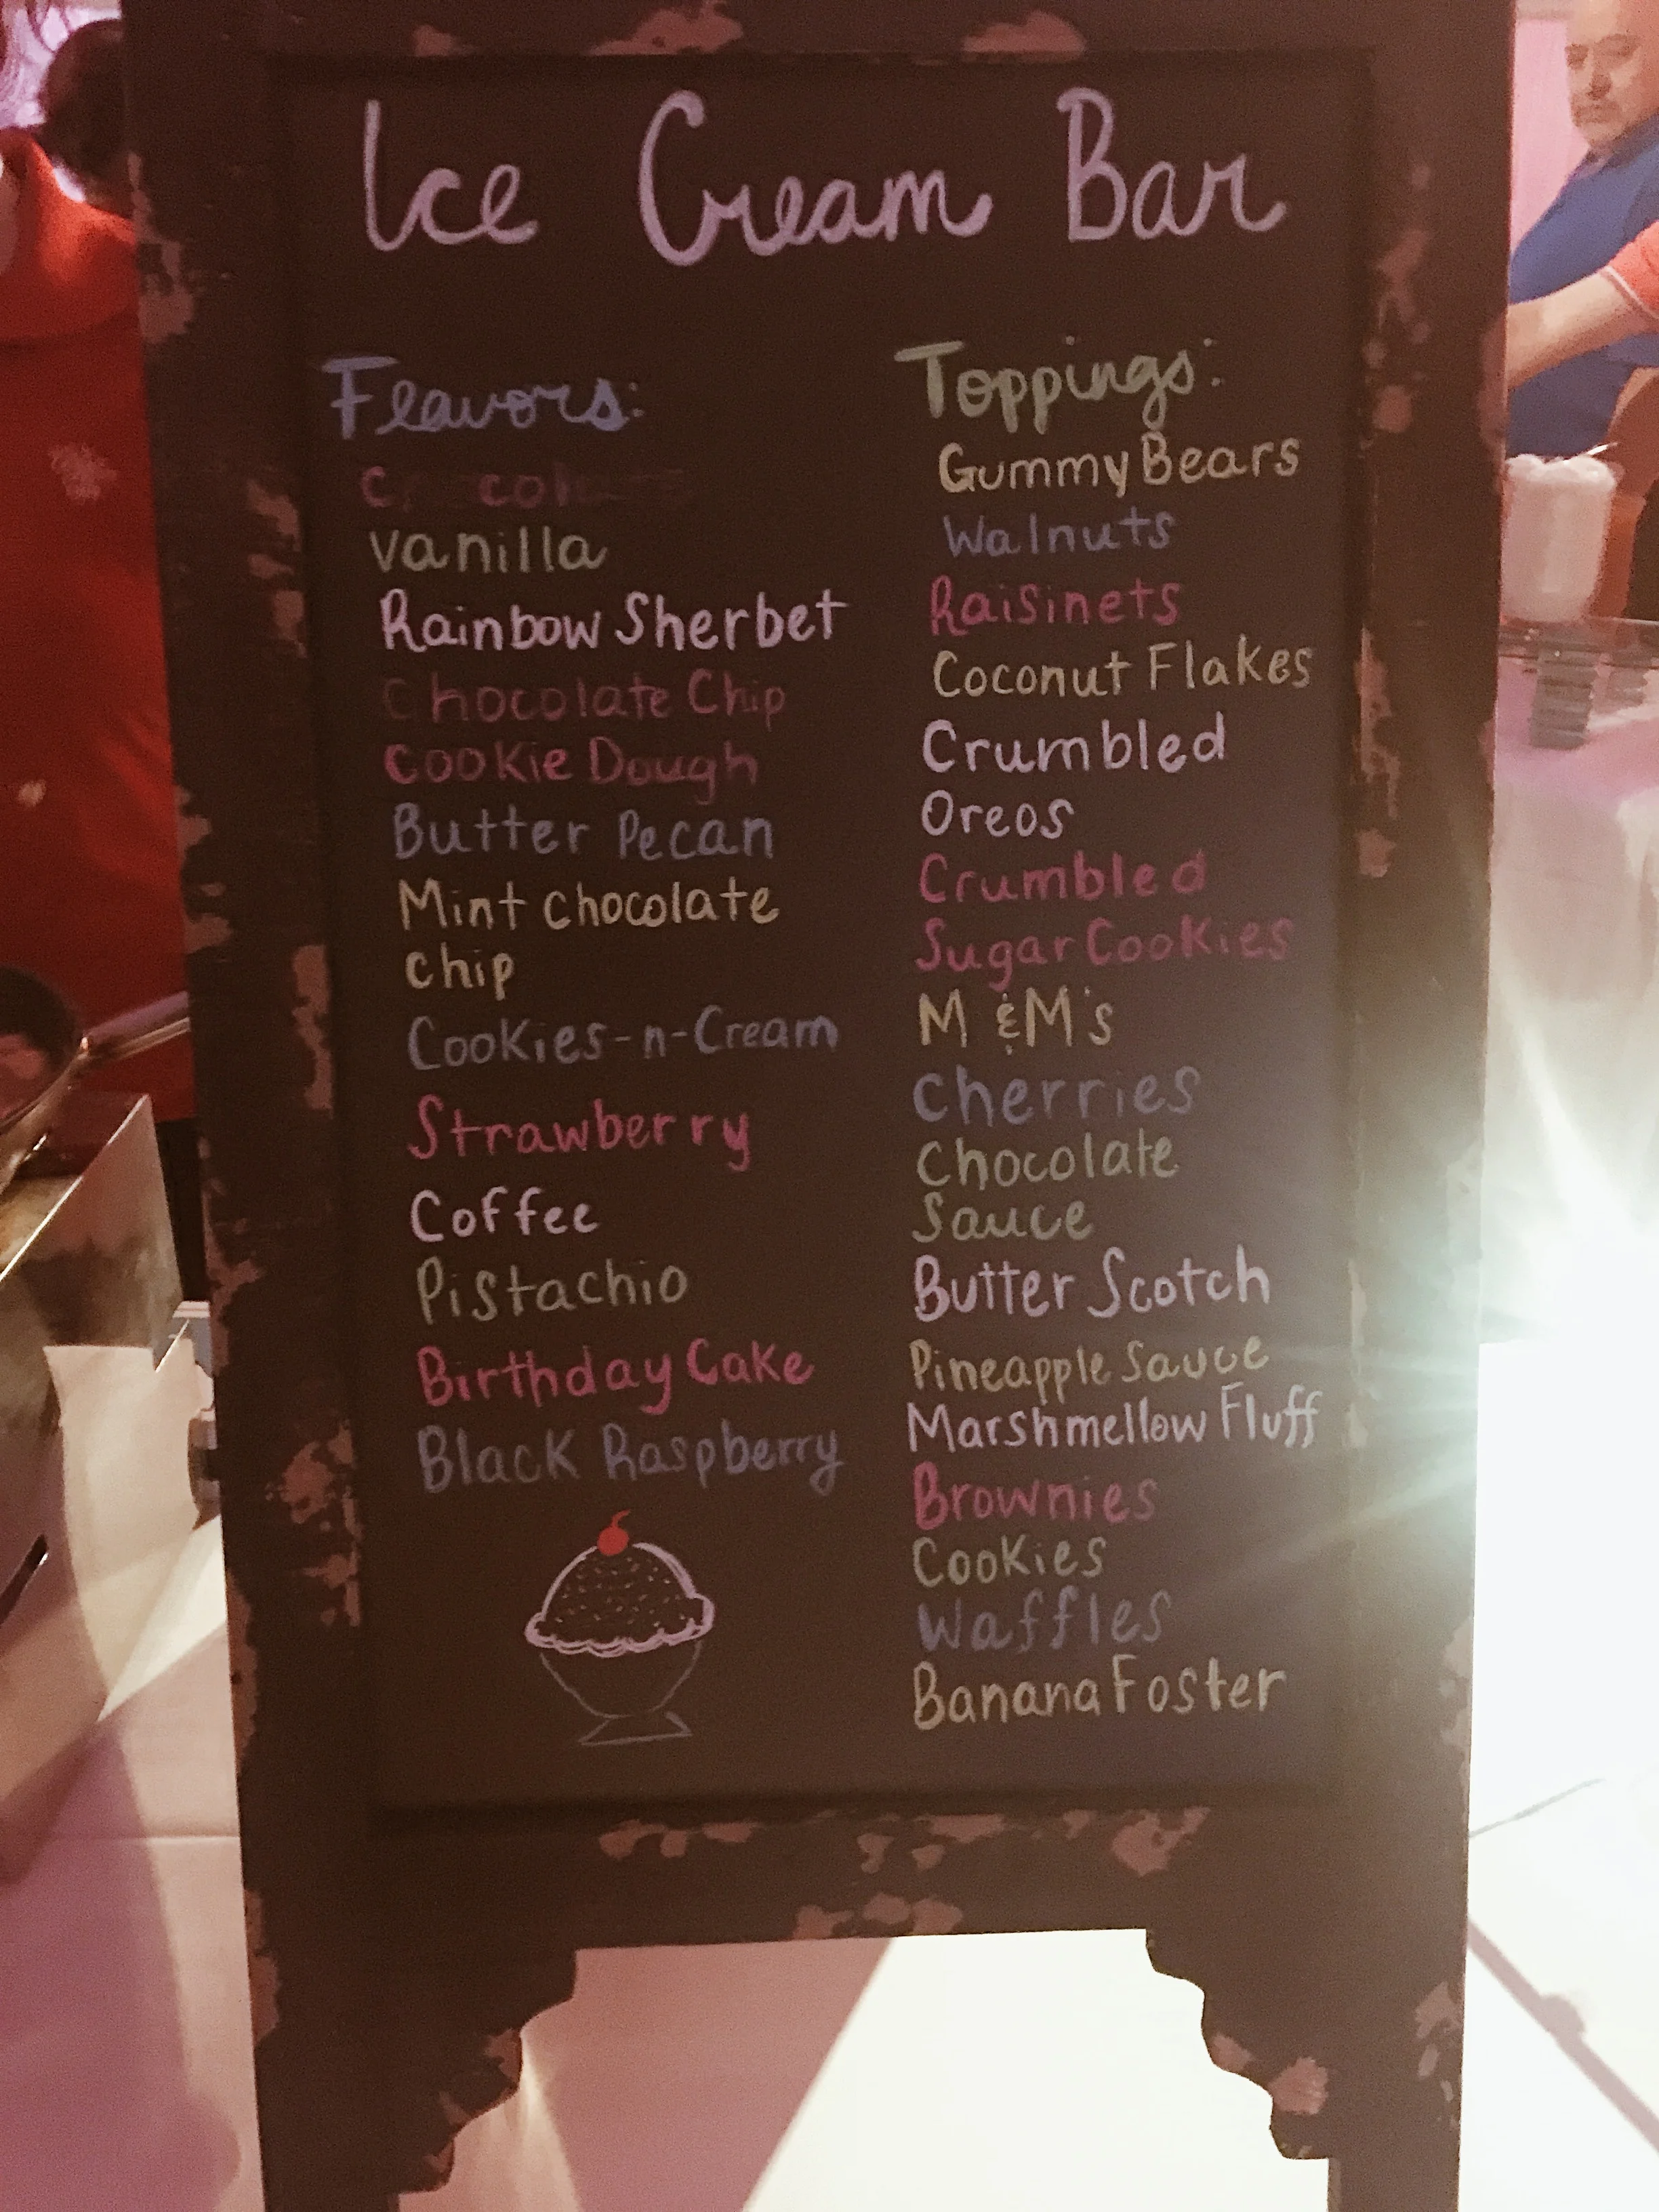 Ice Cream Bar
Flavors:
vanilla
Rainbow Sherbet
Chocolate Chip
Cookie Dough
Butter Pecan
Mint chocolate
chip
Cookies-n-Cream
Strawberry
Coffee
Pistachio
Birthday Cake
Black Raspberry
Toppings:
Gummy Bears
Walnuts
Raisinets
Coconut Flakes
Crumbled
Oreos
Crumbled
Sugar Cookies
M &M's
Cherries
Chocolate
Sauce
Butter Scotch
Pineapple Sauce
Marshmellow Fluff
Brownies
Cookies
Waffles
Banana Foster